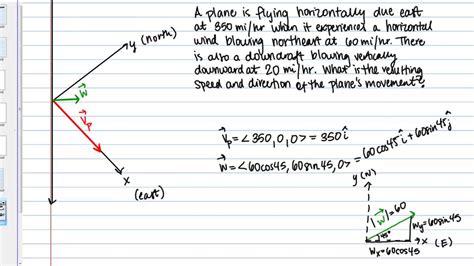 A plane is flying horizontally due east
at 350 mi/hr when it experiences a horizontal
wind blowing northeast at 60 mi/hr. There
is also a downdraft blowing vertically
downward at 20 mi/hr. What is the resulting
speed and direction of the plane's movement?
y (north)
W
V_P
x
(east)
V_P = <350, 0, 0> = 350 i
W = <60cos45, 60sin45, 0> = 60cos45 i + 60sin45 j
y (N)
|W|=60
45°
W_y=60sin45
x (E)
W_x=60cos45